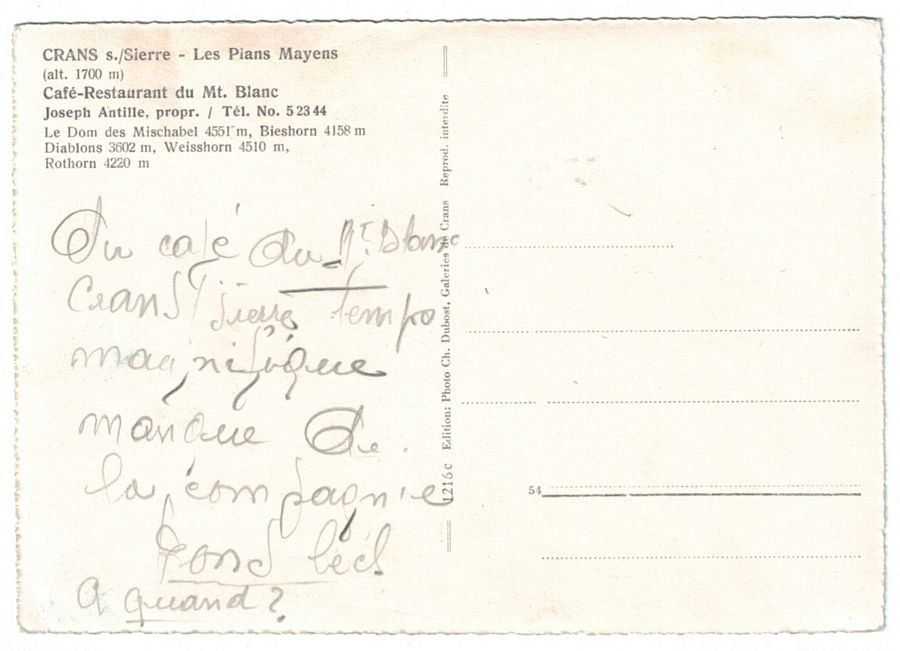 CRANS s./Sierre - Les Plans Mayens
(alt. 1700 m)
Café-Restaurant du Mt. Blanc
Joseph Antille, propr. / Tél. No. 5 23 44
Le Dom des Mischabel 4551 m, Bieshorn 4158 m
Diablons 3602 m, Weisshorn 4510 m,
Rothorn 4220 m
Du café du Mt. Blanc
Crans Sierre tempo
magnifique
manque de
la compagnie
A quand?
1216 c Edition: Photo Ch. Dubost, Galeries de Crans Reprod. interdite
54